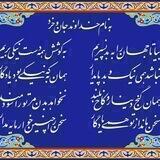 به نام خداوند جان و خرد
بیا تا جهان را به بد نسپریم به کوشش همه دست نیکی بریم
نباشد همی نیک و بد پایدار همان به که نیکی بود یادگار
همان گنج و دینار و کاخ بلند نخواهد بدن مر تو را سودمند
سخن ماند از تو همی یادگار سخن را چنین خوارمایه مدار